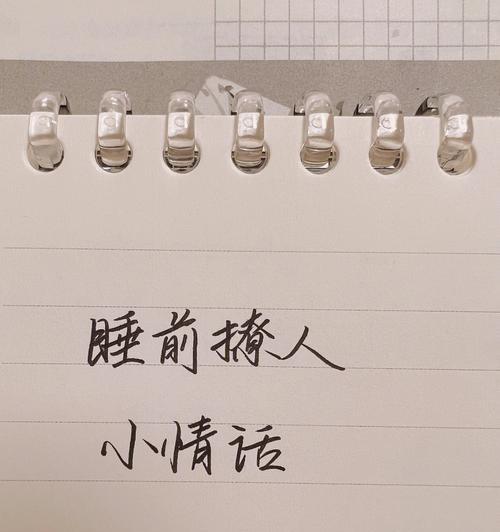 睡前撩人
小情话